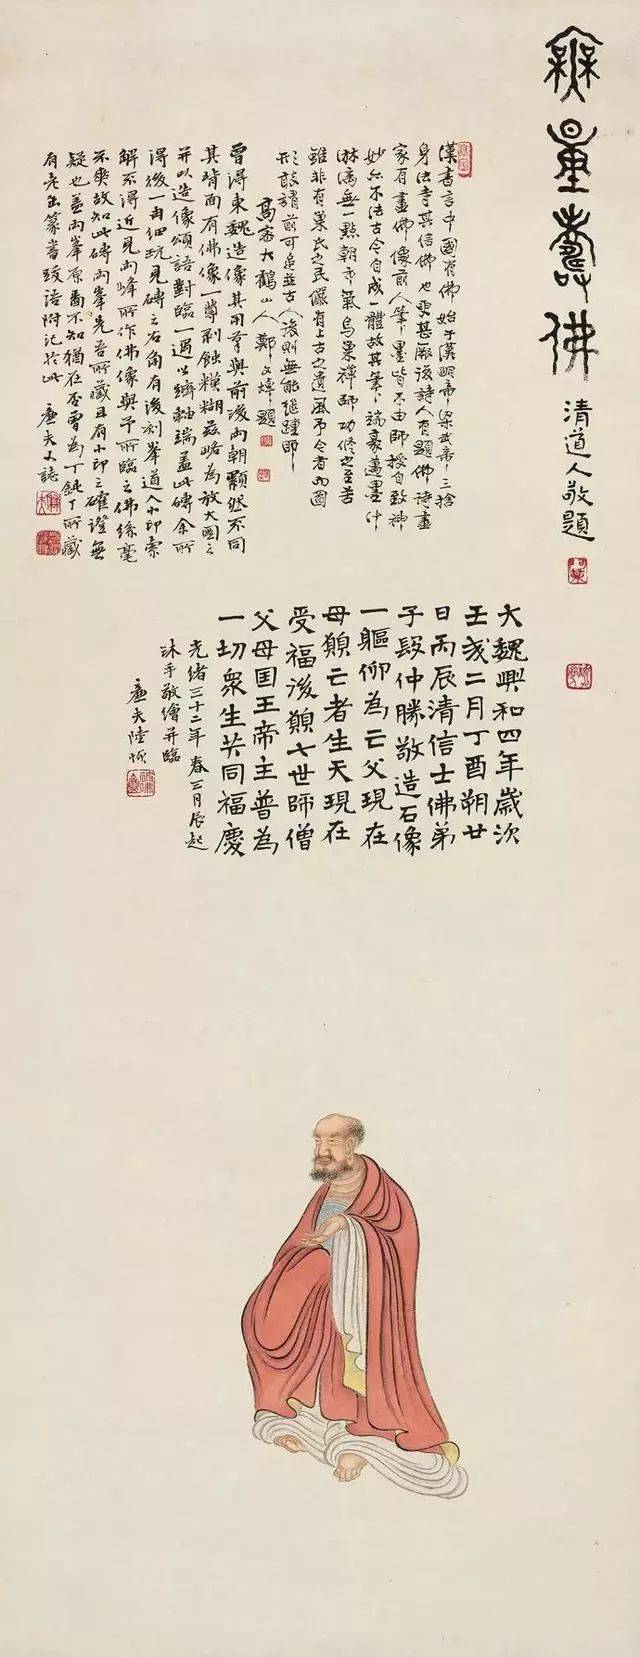 無量壽佛
清道人敬題
漢書言中國有佛始于漢明帝梁武帝三捨
身法寺其信佛也更甚厥後詩人有題佛詩畫
家有畫佛像前人筆墨皆不由師授自致神
妙亦不法古今自成一體故其筆端豪蕩墨汁
淋漓無一點朝市氣鳥巢禪師功修之至苦
雖非有巢氏之民儼有上古之遺風予今者為圖
形敢謂前可追並古人後則無能繼踵耶
高密大鶴山人鄭文焯題
曾得東魏造像其用筆與前後兩朝顯然不同
其背面有佛像一尊剥蝕糢糊茲略為放大圖之
并以造像頌語對臨一過以躋軸端盖此磚余所
得後一再細玩見磚之右角有後刻峯道人小印索
解不得近見兩峰所作佛像與予所臨之佛絲毫
不爽故知此磚兩峯先吾所藏且有小印之確證無
疑也盖兩峯原畵不知猶在否曾為丁鈍丁所藏
有老缶篆書跋語附記於此 廉夫又誌
大魏興和四年歲次
壬戌二月丁酉朔廿
日丙辰清信士佛弟
子段仲勝敬造石像
一軀仰為亡父現在
母願亡者生天現在
受福後願七世師僧
父母国王帝主普為
一切衆生共同福慶
光緒三十二年春三月辰起
沐手敬繪并臨
廉夫陸恢